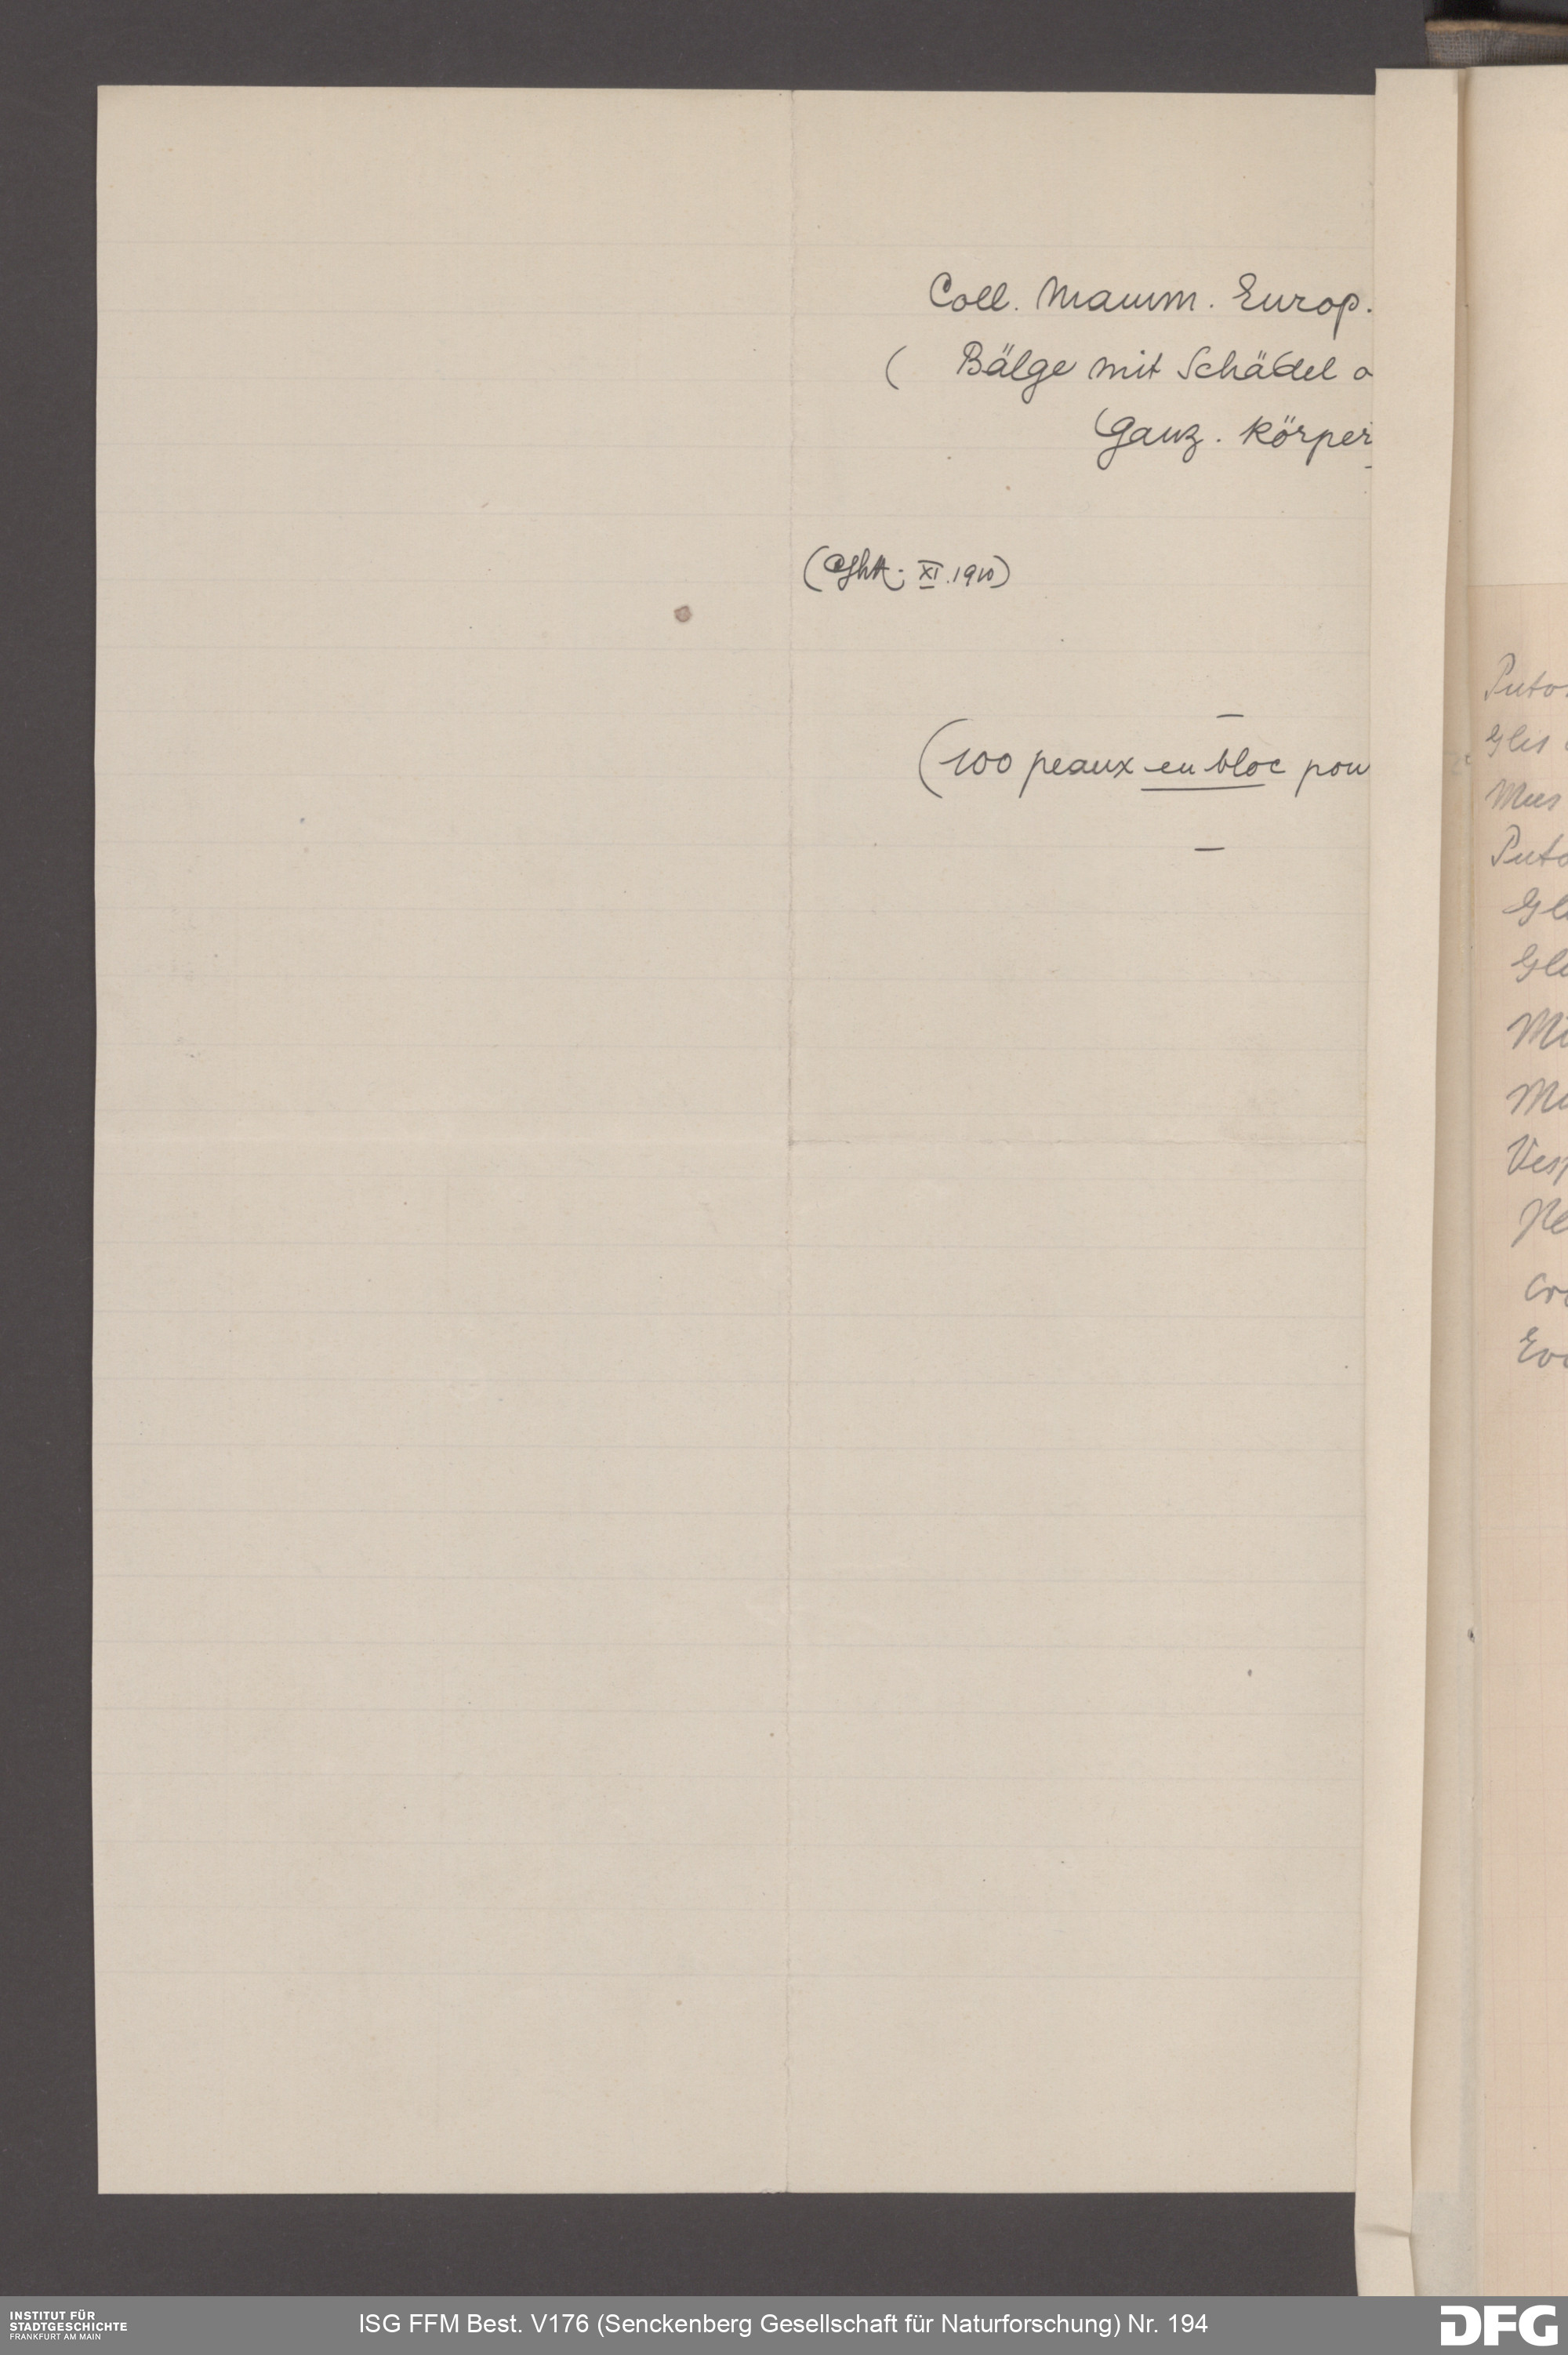 Coll. Mamm. Europ.
( Bälge mit Schädel o
Ganz. Körper
XI. 1910)
(100 peaux en bloc pou
Puto
Glis
Mus
Puto
Gl
Gli
Mu
Mu
Vesp
Cro
Evo
INSTITUT FÜR
STADTGESCHICHTE
FRANKFURT AM MAIN
ISG FFM Best. V176 (Senckenberg Gesellschaft für Naturforschung) Nr. 194
DFG